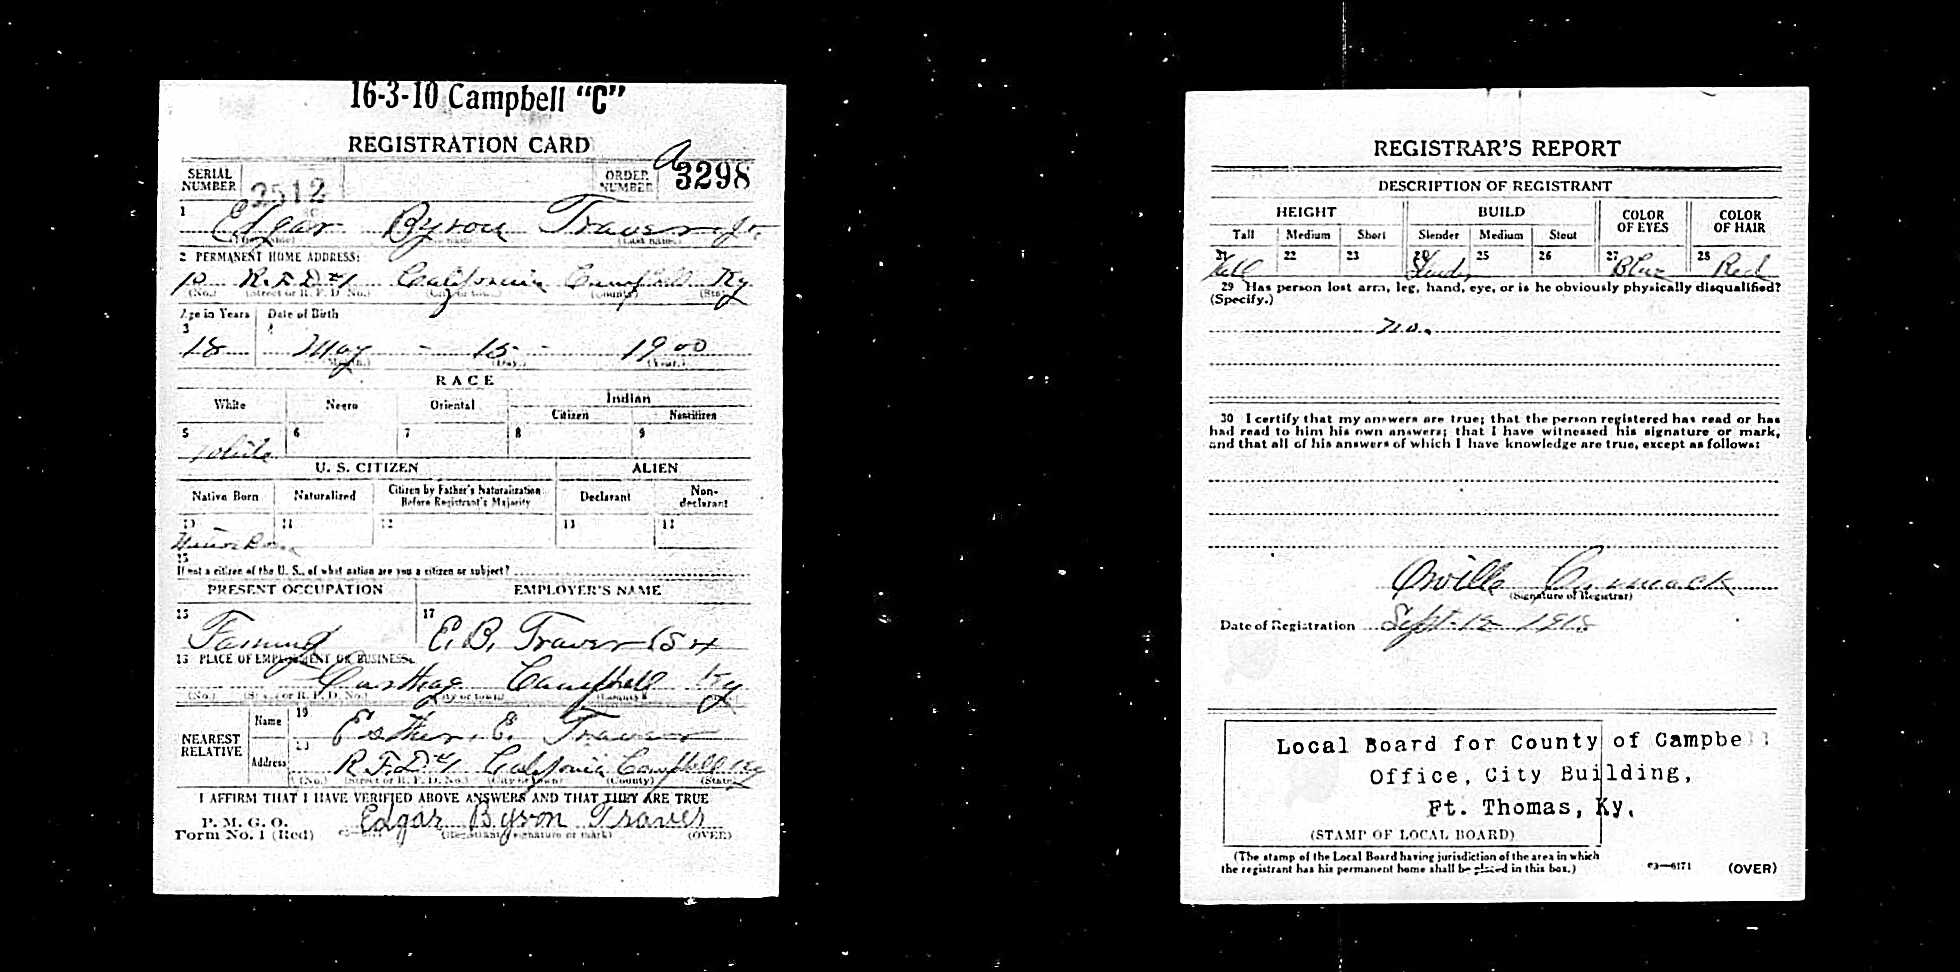 16-3-10 Campbell "C"
REGISTRATION CARD
SERIAL NUMBER 2512 ORDER NUMBER A 3298
1 Edgar Byron Traver Jr.
(Last name)
2 PERMANENT HOME ADDRESS:
10 R.F.D #1 California Campbell Ky
(No.) (Street or R. F. D. No.) (City or town) (County) (State)
Age in Years Date of Birth
3 4
18 May - 15 - 1900
(Month.) (Day.) (Year.)
RACE
White Negro Oriental Indian
Citizen Noncitizen
5 6 7 8 9
White
U. S. CITIZEN ALIEN
Native Born Naturalized Citizen by Father's Naturalization Before Registrant's Majority Declarant Non-declarant
10 11 12 13 14
15
If not a citizen of the U. S., of what nation are you a citizen or subject?
PRESENT OCCUPATION EMPLOYER'S NAME
16 17
Farming E. B. Traver Sr
18 PLACE OF EMPLOYMENT OR BUSINESS:
Carthage Campbell Ky
(No.) (Street or R. F. D. No.) (City or town) (County) (State)
NEAREST RELATIVE Name 19 Esther. E. Traver
Address 20 R.F.D #1 California Campbell Ky
(No.) (Street or R. F. D. No.) (City or town) (County) (State)
I AFFIRM THAT I HAVE VERIFIED ABOVE ANSWERS AND THAT THEY ARE TRUE
P. M. G. O.
Form No. 1 (Red) Edgar Byron Traver
(Registrant's signature or mark) (OVER)
REGISTRAR'S REPORT
DESCRIPTION OF REGISTRANT
HEIGHT BUILD COLOR OF EYES COLOR OF HAIR
Tall Medium Short Slender Medium Stout
21 22 23 24 25 26 27 28
Tall Slender Blue Red
29 Has person lost arm, leg, hand, eye, or is he obviously physically disqualified?
(Specify.)
No.
30 I certify that my answers are true; that the person registered has read or has
had read to him his own answers; that I have witnessed his signature or mark,
and that all of his answers of which I have knowledge are true, except as follows:
Orville
(Signature of Registrar)
Date of Registration Sept. 12 1918
Local Board for County of Campbell
Office, City Building,
Ft. Thomas, Ky.
(STAMP OF LOCAL BOARD)
(The stamp of the Local Board having jurisdiction of the area in which
the registrant has his permanent home shall be placed in this box.)
03—6171 (OVER)